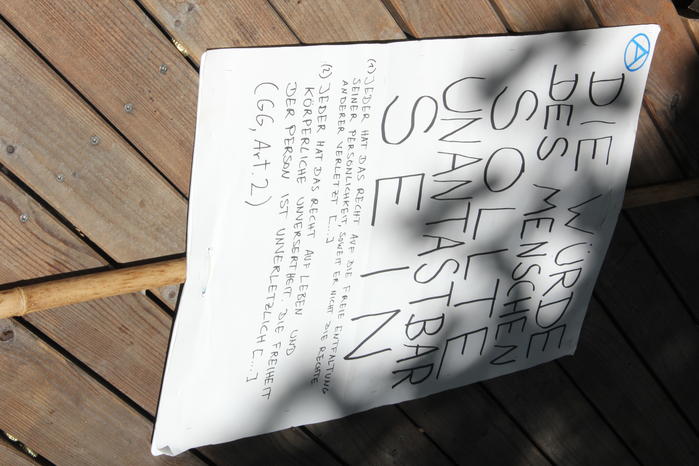 A
DIE WÜRDE
DES MENSCHEN
SOLLTE
UNANTASTBAR
SEIN
(1) JEDER HAT DAS RECHT AUF DIE FREIE ENTFALTUNG
SEINER PERSÖNLICHKEIT, SOWEIT ER NICHT DIE RECHTE
ANDERER VERLETZT [...]
(2) JEDER HAT DAS RECHT AUF LEBEN UND
KÖRPERLICHE UNVERSERTHEIT. DIE FREIHEIT
DER PERSON IST UNVERLETZLICH [...]
(GG, Art. 2)